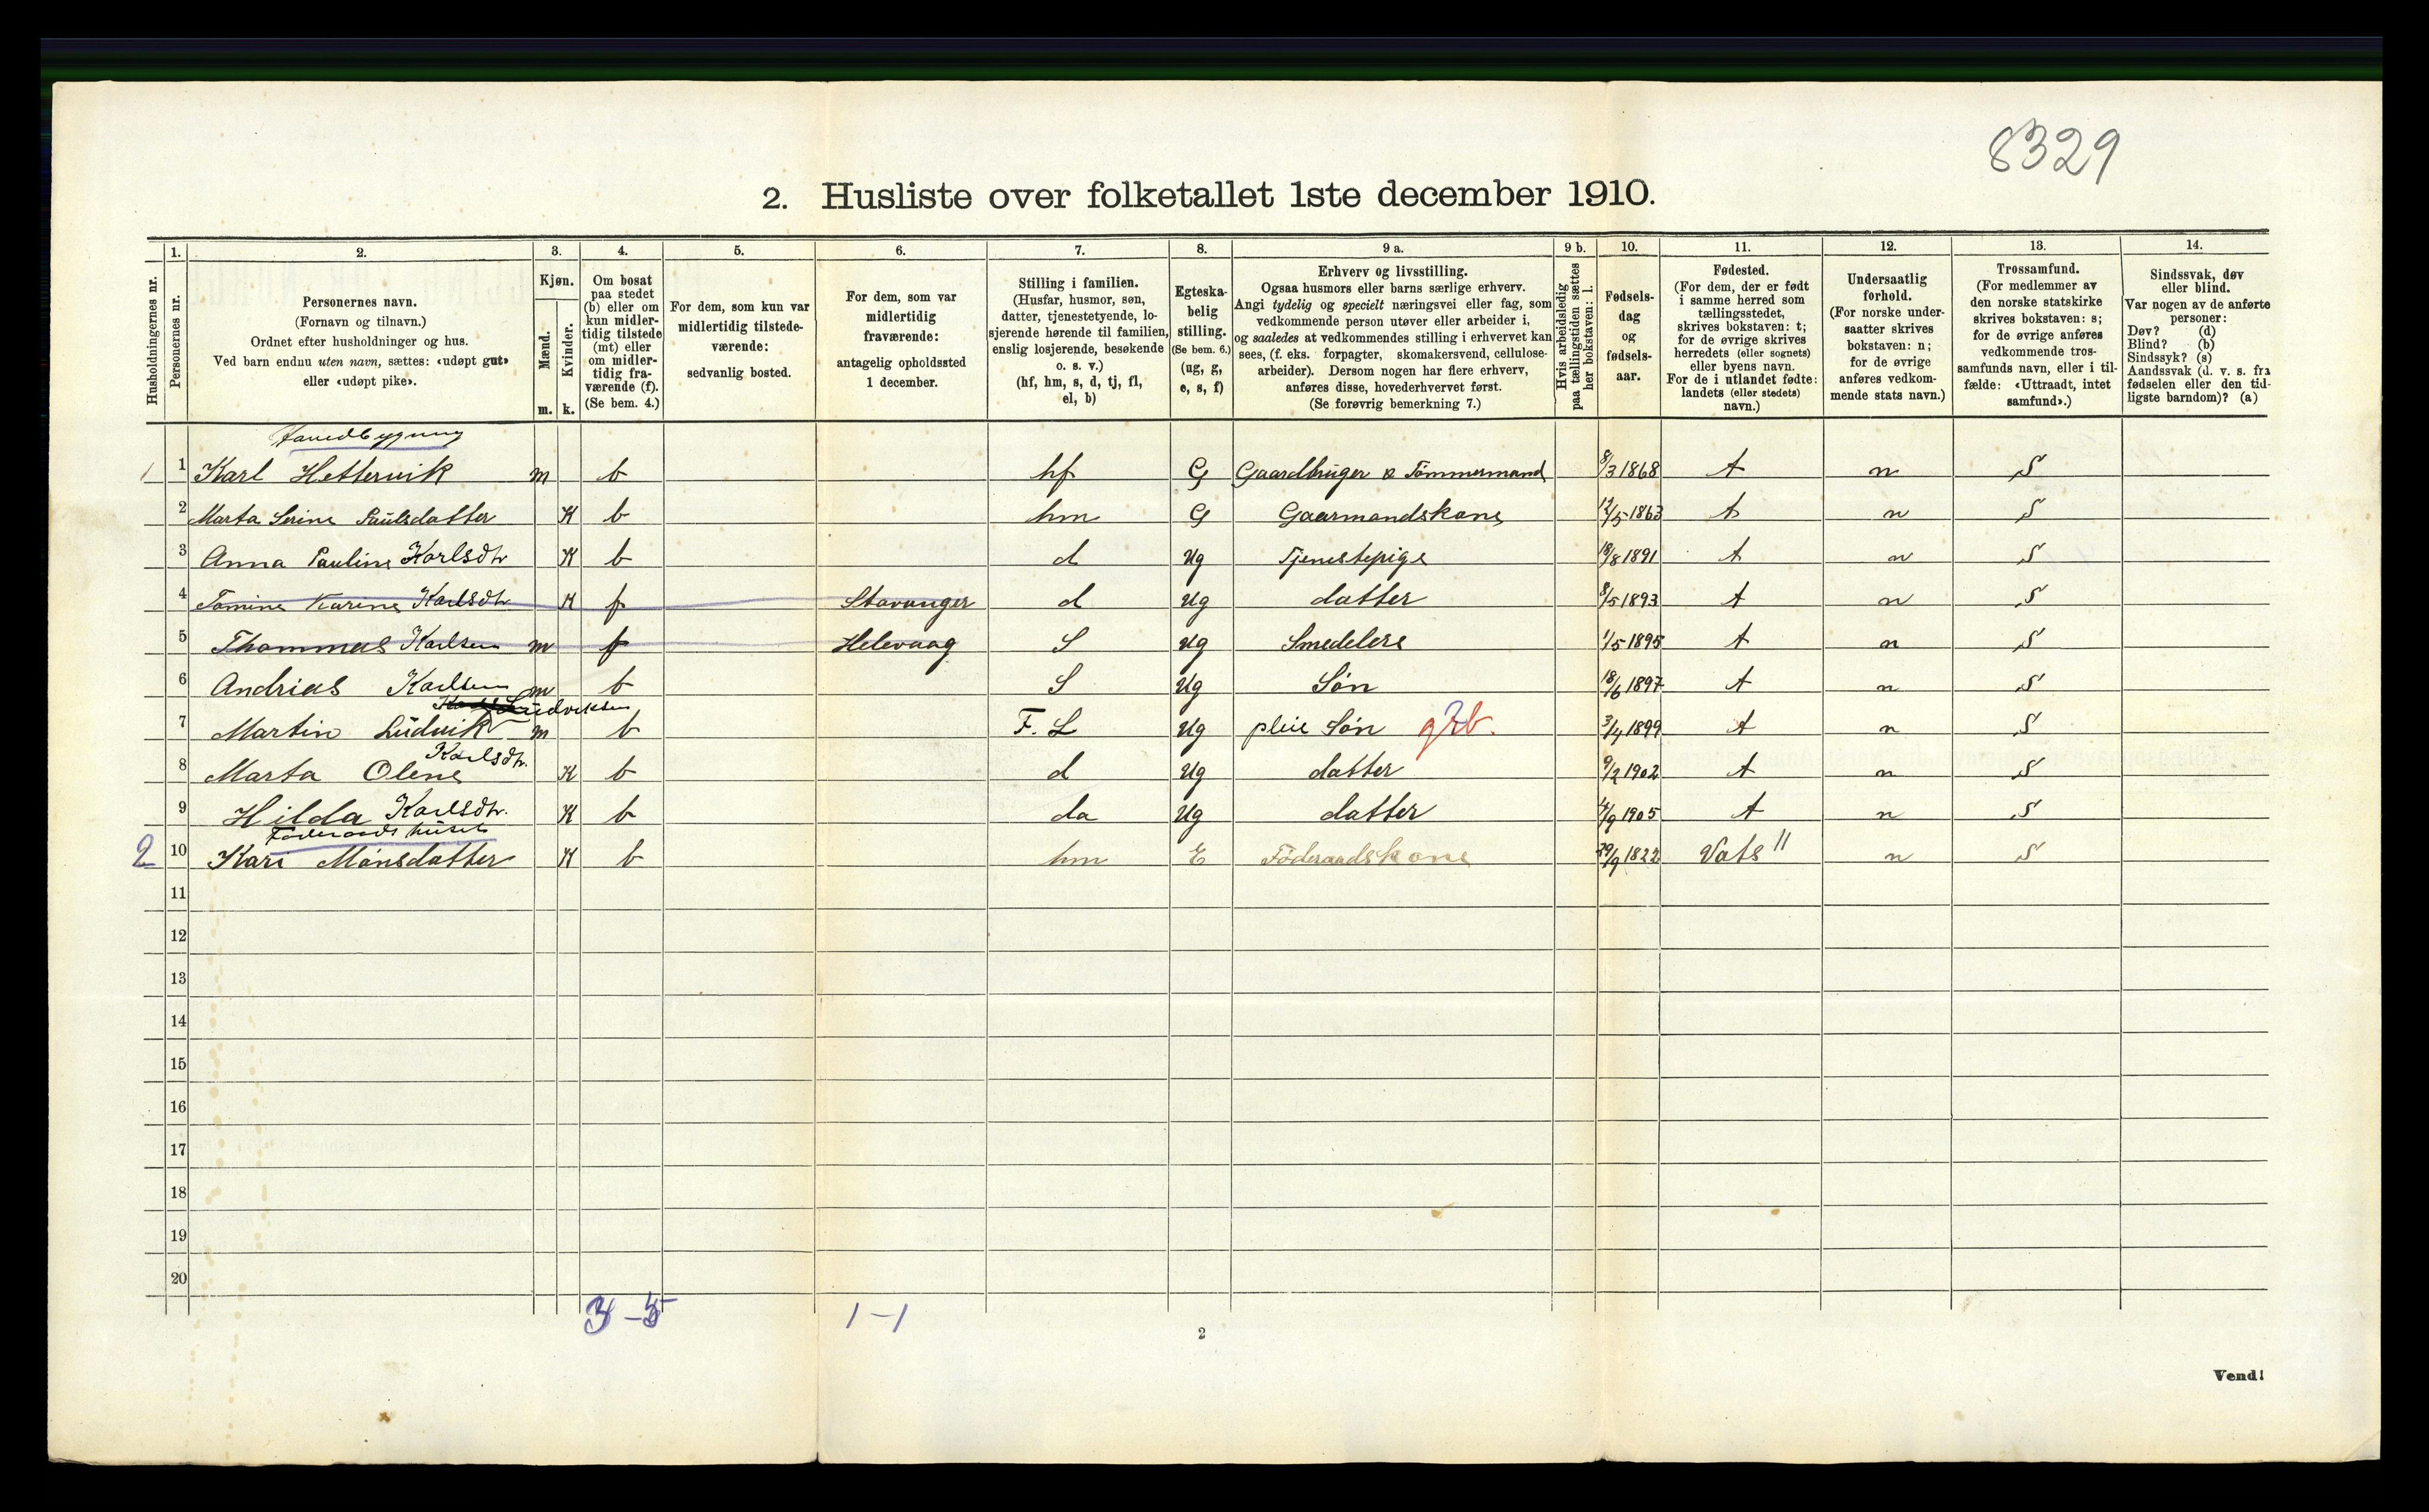 8329
2. Husliste over folketallet 1ste december 1910.
Husholdningernes nr.
1.
Personernes nr.
2.
Personernes navn.
(Fornavn og tilnavn.)
Ordnet efter husholdninger og hus.
Ved barn endnu uten navn, sættes: «udøpt gut»
eller «udøpt pike».
3.
Kjøn.
Mænd.
m.
Kvinder.
k.
4.
Om bosat
paa stedet
(b) eller om
kun midler-
tidig tilstede
(mt) eller
om midler-
tidig fra-
værende (f).
(Se bem. 4.)
5.
For dem, som kun var
midlertidig tilstede-
værende:
sedvanlig bosted.
6.
For dem, som var
midlertidig
fraværende:
antagelig opholdssted
1 december.
7.
Stilling i familien.
(Husfar, husmor, søn,
datter, tjenestetyende, lo-
sjerende hørende til familien,
enslig losjerende, besøkende
o. s. v.)
(hf, hm, s, d, tj, fl,
el, b)
8.
Egteska-
belig
stilling.
(Se bem. 6.)
(ug, g,
e, s, f)
9 a.
Erhverv og livsstilling.
Ogsaa husmors eller barns særlige erhverv.
Angi tydelig og specielt næringsvei eller fag, som
vedkommende person utøver eller arbeider i,
og saaledes at vedkommendes stilling i erhvervet kan
sees, (f. eks. forpagter, skomakersvend, cellulose-
arbeider). Dersom nogen har flere erhverv,
anføres disse, hovederhvervet først.
(Se forøvrig bemerkning 7.)
9 b.
Hvis arbeidsledig
paa tællingstiden sættes
her bokstaven: l.
10.
Fødsels-
dag
og
fødsels-
aar.
11.
Fødested.
(For dem, der er født
i samme herred som
tællingsstedet,
skrives bokstaven: t;
for de øvrige skrives
herredets (eller sognets)
eller byens navn.
For de i utlandet fødte:
landets (eller stedets)
navn.)
12.
Undersaatlig
forhold.
(For norske under-
saatter skrives
bokstaven: n;
for de øvrige
anføres vedkom-
mende stats navn.)
13.
Trossamfund.
(For medlemmer av
den norske statskirke
skrives bokstaven: s;
for de øvrige anføres
vedkommende tros-
samfunds navn, eller i til-
fælde: «Uttraadt, intet
samfund».)
14.
Sindssvak, døv
eller blind.
Var nogen av de anførte
personer:
Døv? (d)
Blind? (b)
Sindssyk? (s)
Aandssvak (d. v. s. fra
fødselen eller den tid-
ligste barndom)? (a)
1 1 Karl Hettervik m b hf G Gaardbruger & Tömmermand 8/3 1868 t n S
2 Marta Serine Paulsdatter K b hm G Gaarmandskone 12/5 1863 t n S
3 Anna Pauline Karlsdtr K b d Ug Tjenestepige 18/8 1891 t n S
4 Tomine Karine Karlsdtr K f Stavanger d Ug datter 8/5 1893 t n S
5 Thommas Karlsen m f Helevaag S Ug Smedelere 1/5 1895 t n S
6 Andrias Karlsen m b S Ug Sön 18/6 1897 t n S
Ludviksen
7 Martin Ludvik m b F. L Ug pleie Sön 3/4 1899 t n S
Karlsdtr.
8 Marta Olene K b d Ug datter 9/2 1902 t n S
9 Hilda Karlsdtr. K b da Ug datter 4/9 1905 t n S
Föderaads huset
2 10 Kari Mönsdatter K b hm E Föderaadskone 29/9 1822 Vats " n S
11
12
13
14
15
16
17
18
19
20
3 - 5 1 - 1
2
Vend!